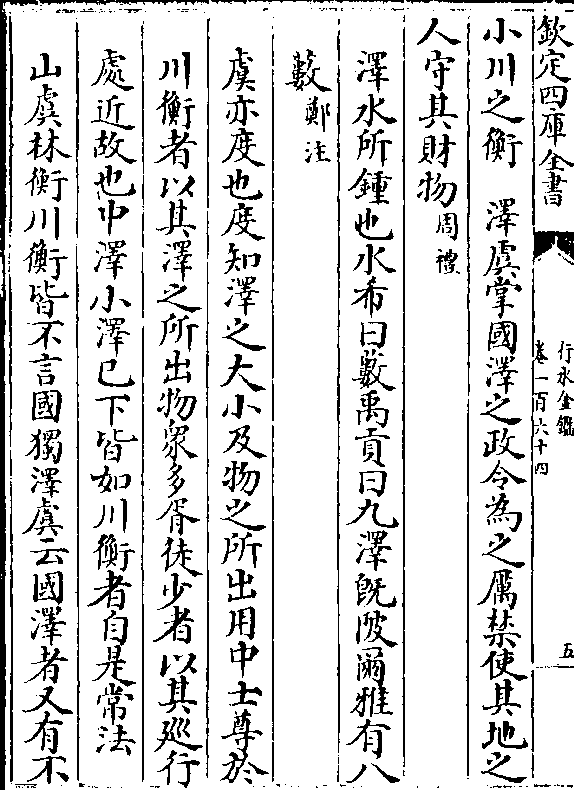 欽定四庫全書
行水金鑑
卷一百六十四
五
小川之衡　澤虞掌國澤之政令為之厲禁使其地之
人守其財物周禮
澤水所鍾也水希曰藪禹貢曰九澤既陂爾雅有八
藪鄭注
虞亦度也度知澤之大小及物之所出用中士尊於
川衡者以其澤之所出物衆多胥徒少者以其廵行
處近故也中澤小澤已下皆如川衡者自是常法
山虞林衡川衡皆不言國獨澤虞云國澤者又有不